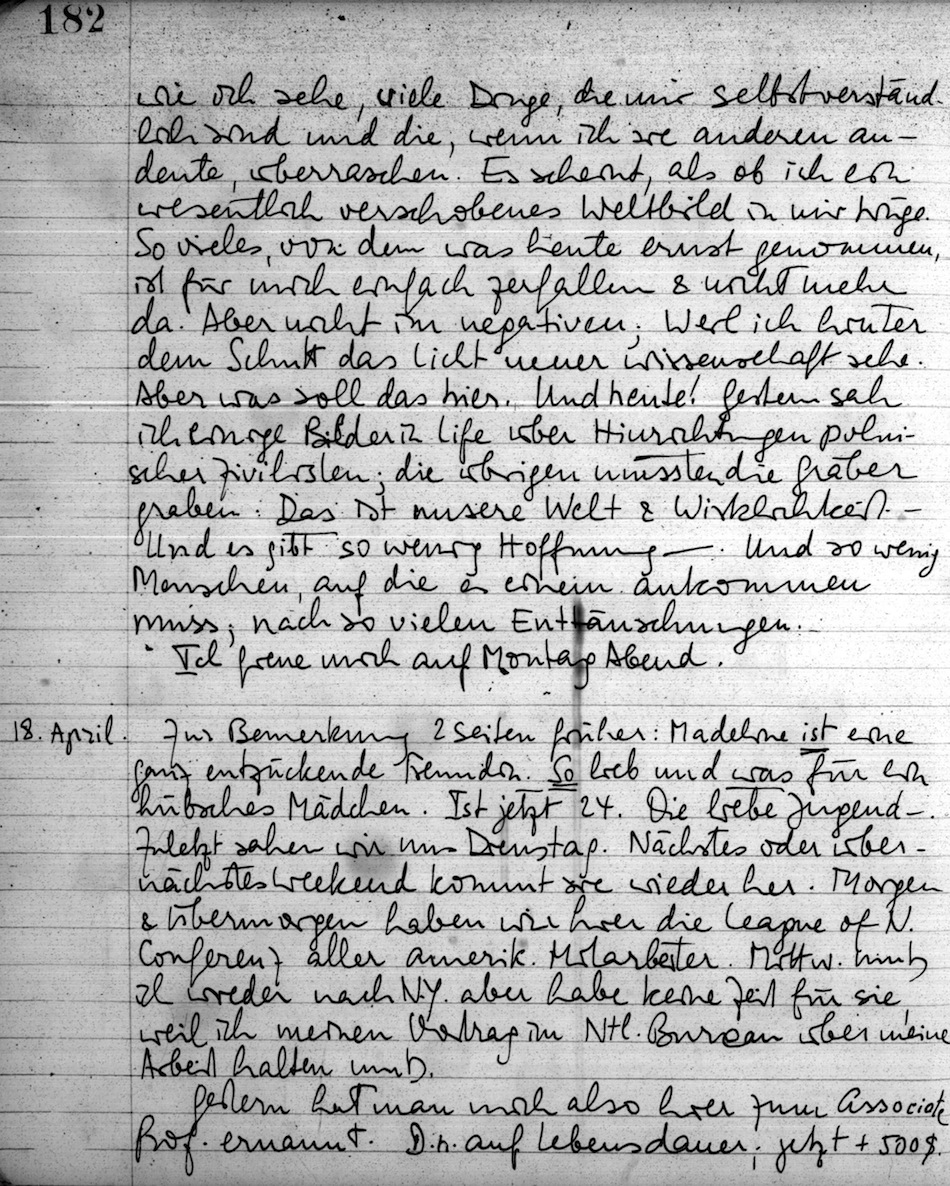 182
wie ich sehe, viele Dinge, die mir selbstverständ-
lich sind und die, wenn ich sie anderen an-
deute, überraschen. Es scheint, als ob ich ein
wesentlich verschobenes Weltbild in mir trüge.
So vieles, von dem was heute ernst genommen,
ist für mich einfach zerfallen & nicht mehr
da. Aber nicht im negativen; Weil ich hinter
dem Schutt das Licht neuer Wissenschaft sehe.
Aber was soll das hier. Und heute! Gestern sah
ich einige Bilder in Life über Hinrichtungen polni-
scher Zivilisten; die übrigen mussten die Gräber
graben. Das ist unsere Welt & Wirklichkeit. –
Und es gibt so wenig Hoffnung —. Und so wenig
Menschen, auf die es einem ankommen
muss; nach so vielen Enttäuschungen. –
Ich freue mich auf Montag Abend.
18. April. Zur Bemerkung 2 Seiten früher: Madeline ist eine
ganz entzückende Freundin. So lieb und was für ein
hübsches Mädchen. Ist jetzt 24. Die liebe Jugend –.
Zuletzt sahen wir uns Dienstag. Nächstes oder über-
nächstes Weekend kommt sie wieder her. Morgen
& Übermorgen haben wir hier die League of N.
Conferenz aller amerik. Mitarbeiter. Mittw. muß
ich wieder nach N.Y. aber habe keine Zeit für sie,
weil ich meinen Vortrag im Ntl. Bureau über meine
Arbeit halten muß.
Gestern hat man mich also hier zum Associate
Prof. ernannt. D.h. auf Lebensdauer; jetzt + 500$.